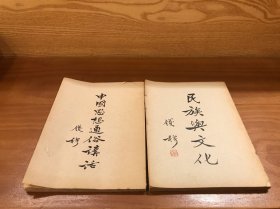 中國思想通俗講話
錢穆
民族與文化
錢穆